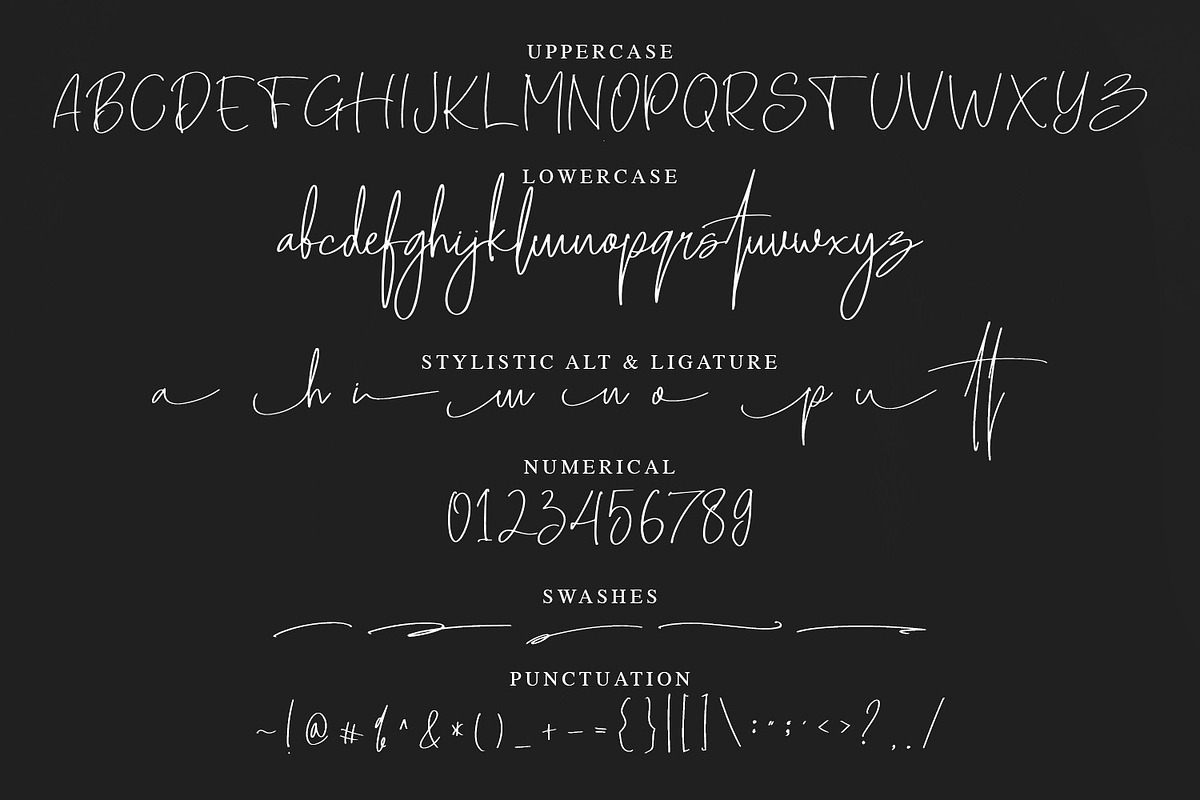 UPPERCASE
ABCDEFGHIJKLMNOPQRSTUVWXYZ
LOWERCASE
abcdefghijklmnopqrstuvwxyz
STYLISTIC ALT & LIGATURE
a h i m n o p u tt
NUMERICAL
0123456789
SWASHES
PUNCTUATION
~!@#%^&*()_+-={}|[]\:";'<>?,./